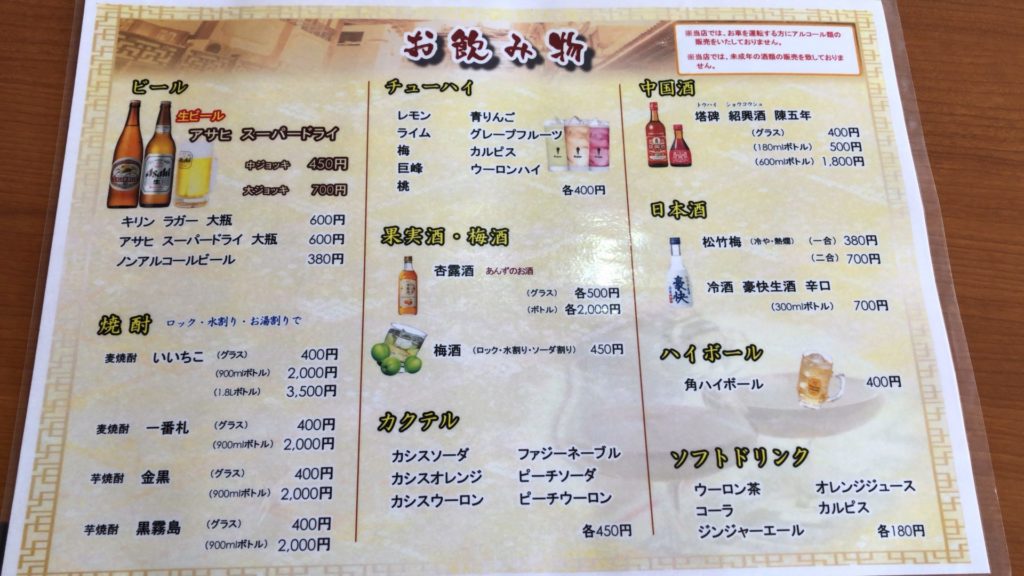 お飲み物
※当店では、お車を運転する方にアルコール類の
販売をいたしておりません。
※当店では、未成年の酒類の販売を致しておりま
せん。
ビール
生ビール
アサヒ スーパードライ
中ジョッキ 450円
大ジョッキ 700円
キリン ラガー 大瓶 600円
アサヒ スーパードライ 大瓶 600円
ノンアルコールビール 380円
焼酎 ロック・水割り・お湯割りで
麦焼酎 いいちこ (グラス) 400円
(900mlボトル) 2,000円
(1.8Lボトル) 3,500円
麦焼酎 一番札 (グラス) 400円
(900mlボトル) 2,000円
芋焼酎 金黒 (グラス) 400円
(900mlボトル) 2,000円
芋焼酎 黒霧島 (グラス) 400円
(900mlボトル) 2,000円
チューハイ
レモン 青りんご
ライム グレープフルーツ
梅 カルピス
巨峰 ウーロンハイ
桃 各400円
果実酒・梅酒
杏露酒 あんずのお酒
(グラス) 各500円
(ボトル) 各2,000円
梅酒 (ロック・水割り・ソーダ割り) 450円
カクテル
カシスソーダ ファジーネーブル
カシスオレンジ ピーチソーダ
カシスウーロン ピーチウーロン
各450円
中国酒
トウハイ ショウコウシュ
塔碑 紹興酒 陳五年
(グラス) 400円
(180mlボトル) 500円
(600mlボトル) 1,800円
日本酒
松竹梅 (冷や・熱燗) (一合) 380円
(二合) 700円
冷酒 豪快生酒 辛口
(300mlボトル) 700円
豪快
ハイボール
角ハイボール 400円
ソフトドリンク
ウーロン茶 オレンジジュース
コーラ カルピス
ジンジャーエール 各180円